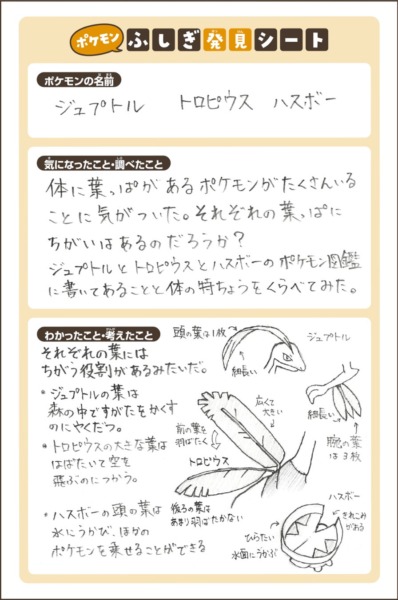 ポケモン ふしぎ発見シート
ポケモンの名前
ジュプトル トロピウス ハスボー
気になったこと・調べたこと
体に葉っぱがあるポケモンがたくさんいる
ことに気がついた。それぞれの葉っぱに
ちがいはあるのだろうか？
ジュプトルとトロピウスとハスボーのポケモン図鑑
に書いてあることと体の特ちょうをくらべてみた。
わかったこと・考えたこと
それぞれの葉には
ちがう役割があるみたいだ。
・ジュプトルの葉は
森の中ですがたをかくす
のにやくだつ。
・トロピウスの大きな葉は
はばたいて空を
飛ぶのにつかう。
・ハスボーの頭の葉は
水にうかび、ほかの
ポケモンを乗せることができる
頭の葉は1枚
ジュプトル
細長い
細長い
腕の葉
は3枚
広くて
大きい
前の葉を
羽ばたく
トロピウス
後ろの葉は
あまり羽ばたかない
ハスボー
きれこみ
がある
ひらたい
水面にうかぶ